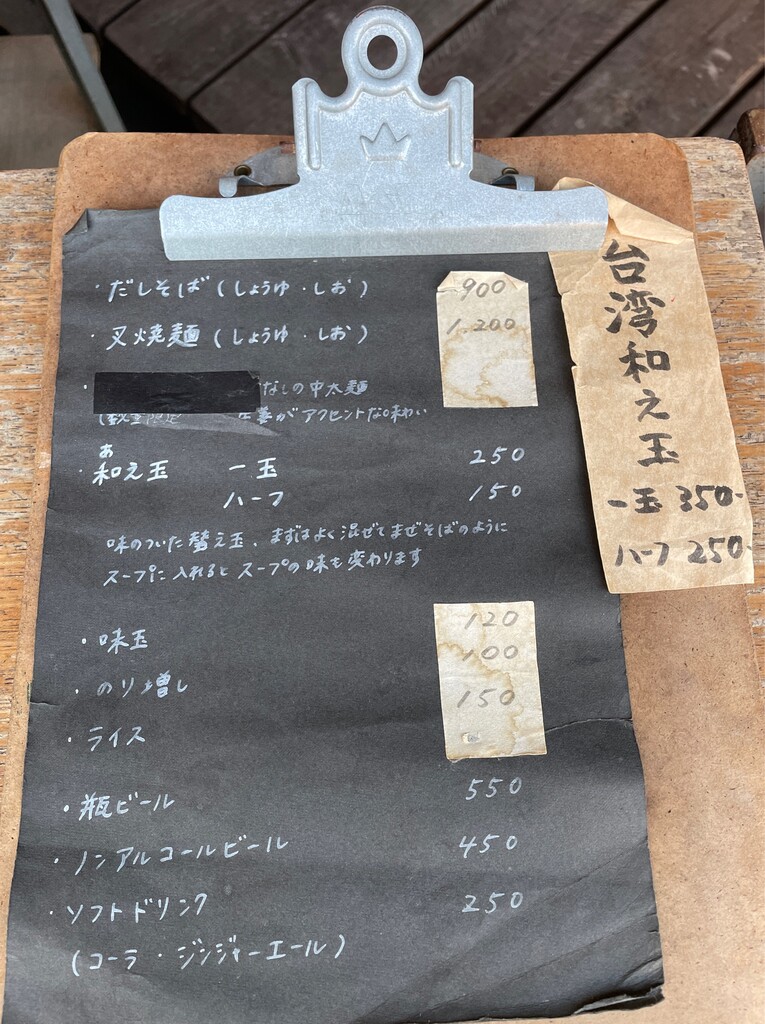 ・だしそば(しょうゆ・しお) 900
・叉焼麺(しょうゆ・しお) 1.200
・ なしの中太麺
(数量限定 生姜がアクセントな味わい
あ
・和え玉 一玉 250
ハーフ 150
味のついた替え玉、まずはよく混ぜてまぜそばのように
スープに入れるとスープの味も変わります
・味玉 120
・のり増し 100
・ライス 150
・瓶ビール 550
・ノンアルコールビール 450
・ソフトドリンク 250
(コーラ・ジンジャーエール)
台湾和え玉
一玉 350-
ハーフ 250-